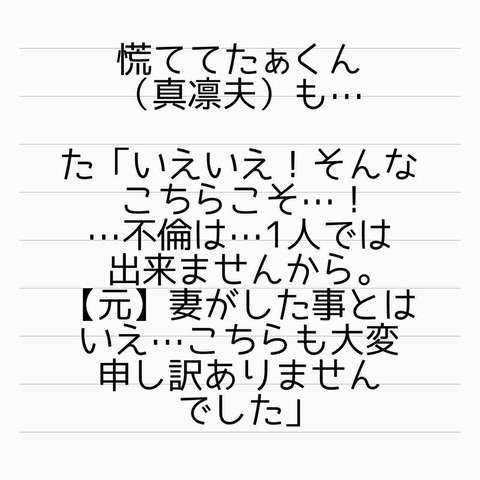 慌ててたぁくん
（真凛夫）も…
た「いえいえ！そんな
こちらこそ…！
…不倫は…1人では
出来ませんから。
【元】妻がした事とは
いえ…こちらも大変
申し訳ありません
でした」